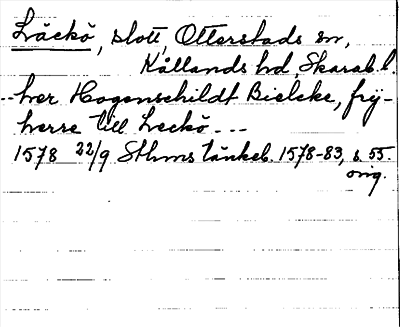 Läckö, slott, Otterstads sn,
Kållands hd, Skarab. l.
--her Hogenschildt Bielcke, frij-
herre till Leckö ---
1578 22/9 Sthms tänkeb. 1578-83, s. 55.
orig.